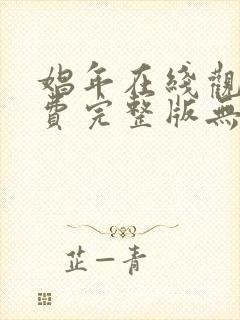 娼年在线觀
費完整版無
芷一青